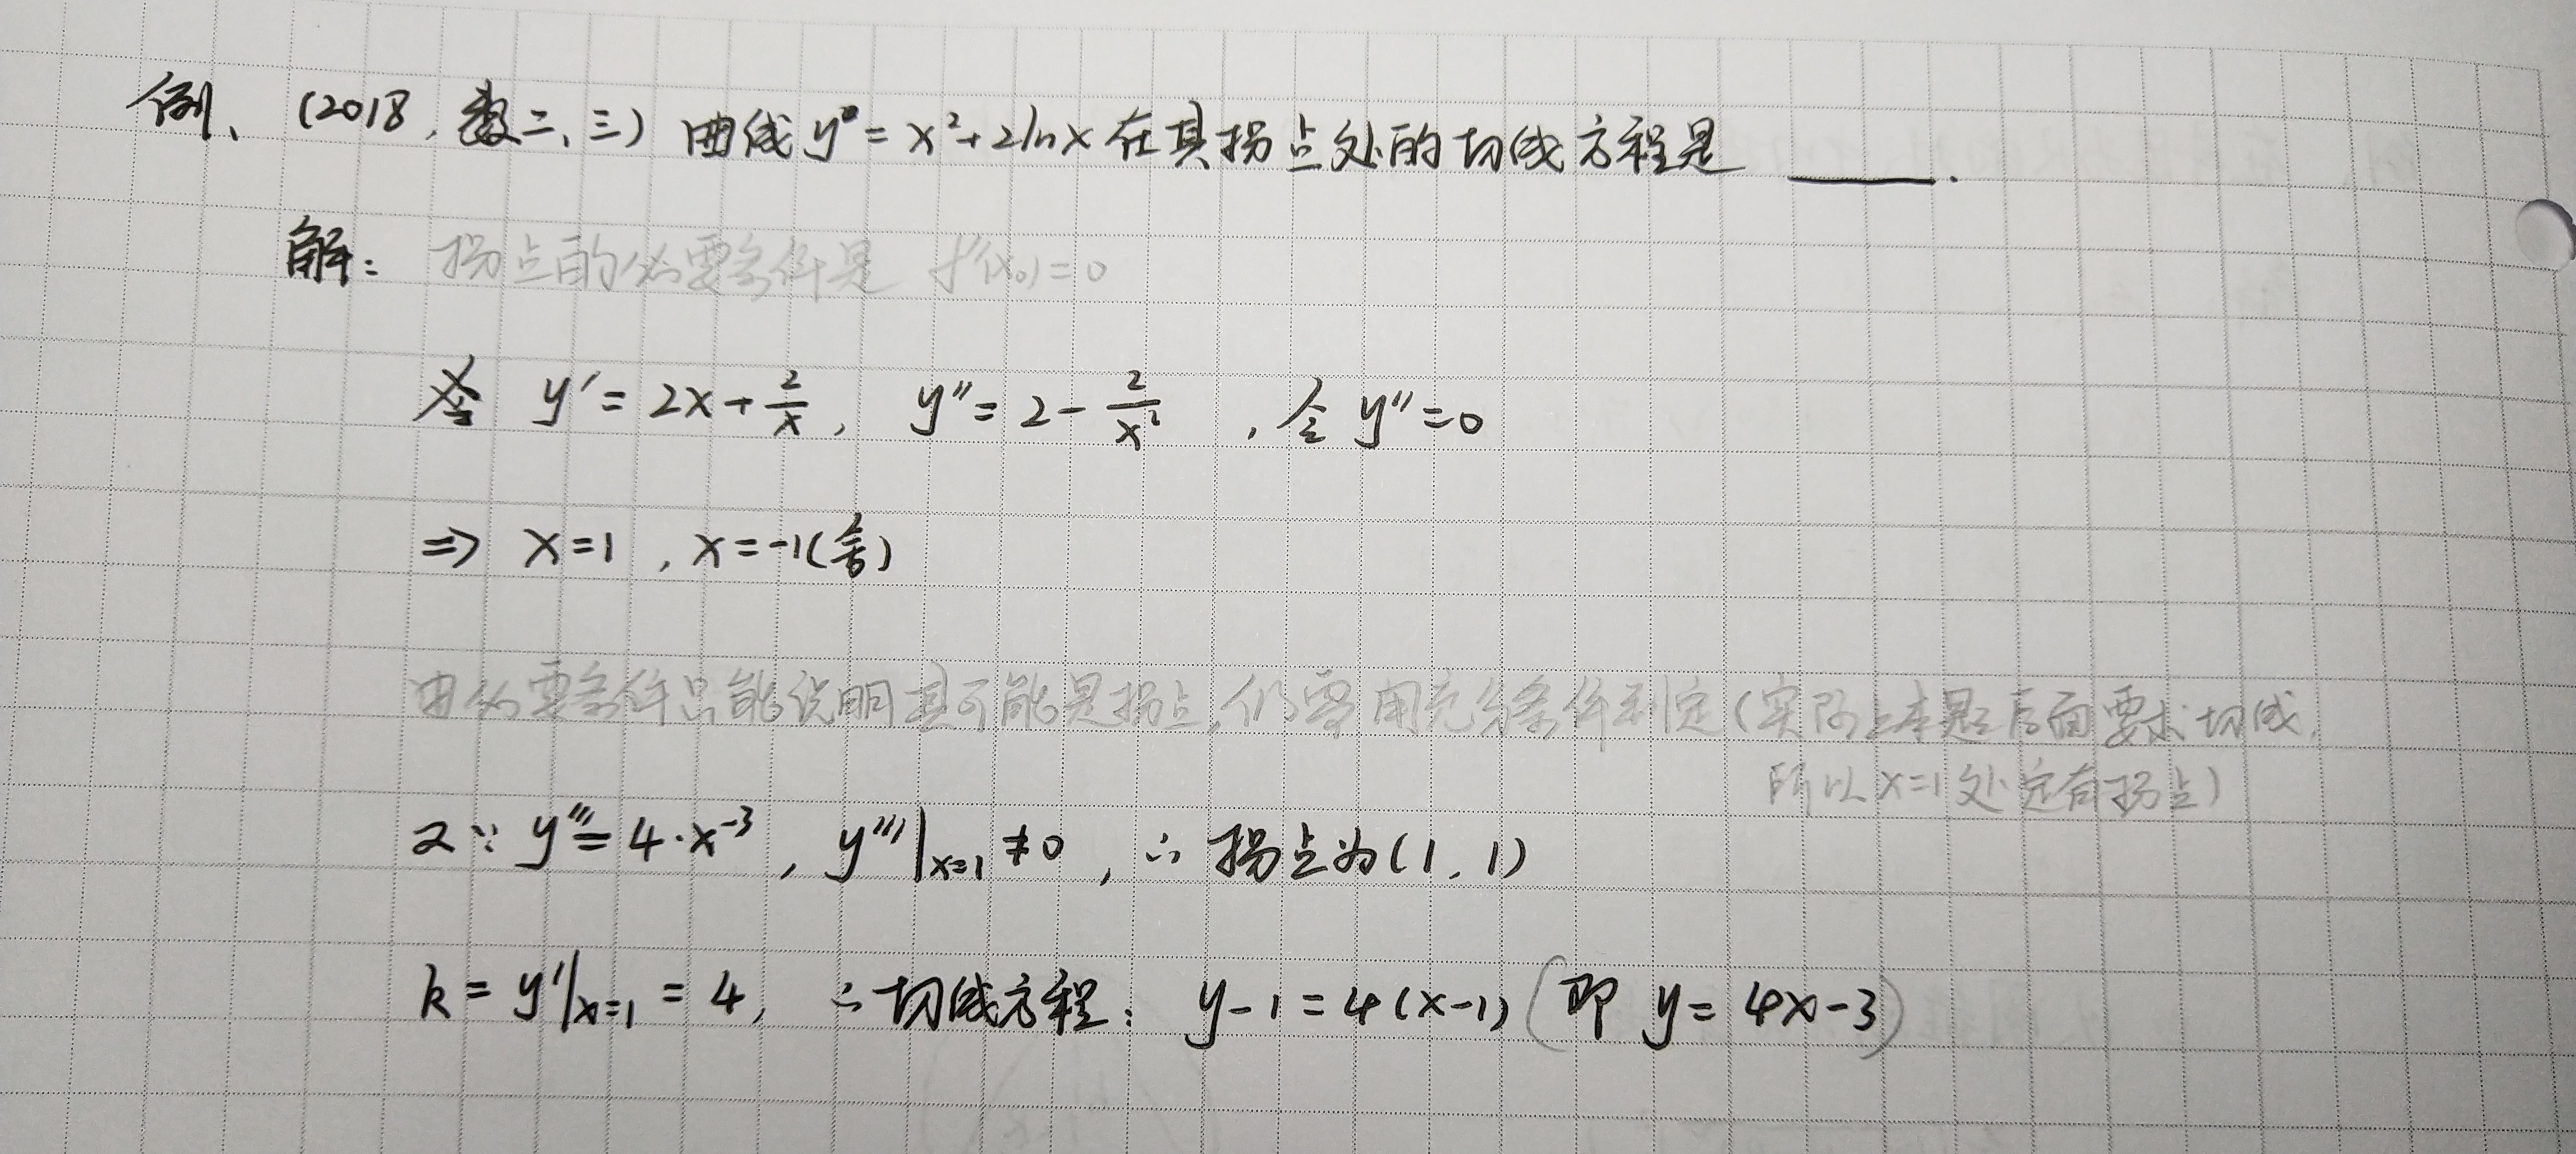 例、(2018，数二、三) 曲线 y = x² + 2lnx 在其拐点处的切线方程是 ____.
解： 拐点的必要条件是 f''(x₀)=0
y' = 2x + 2/x， y'' = 2 - 2/x² ，令 y''=0
⇒ x=1 ，x=-1(舍)
由必要条件只能说明其可能是拐点，仍需用充分条件判定(实际上本题后面要求切线，
所以x=1处定有拐点)
又∵ y''' = 4·x⁻³ ，y'''|x=1 ≠0 ，∴ 拐点为(1，1)
k = y'|x=1 = 4，∴切线方程： y-1=4(x-1) (即 y= 4x-3)